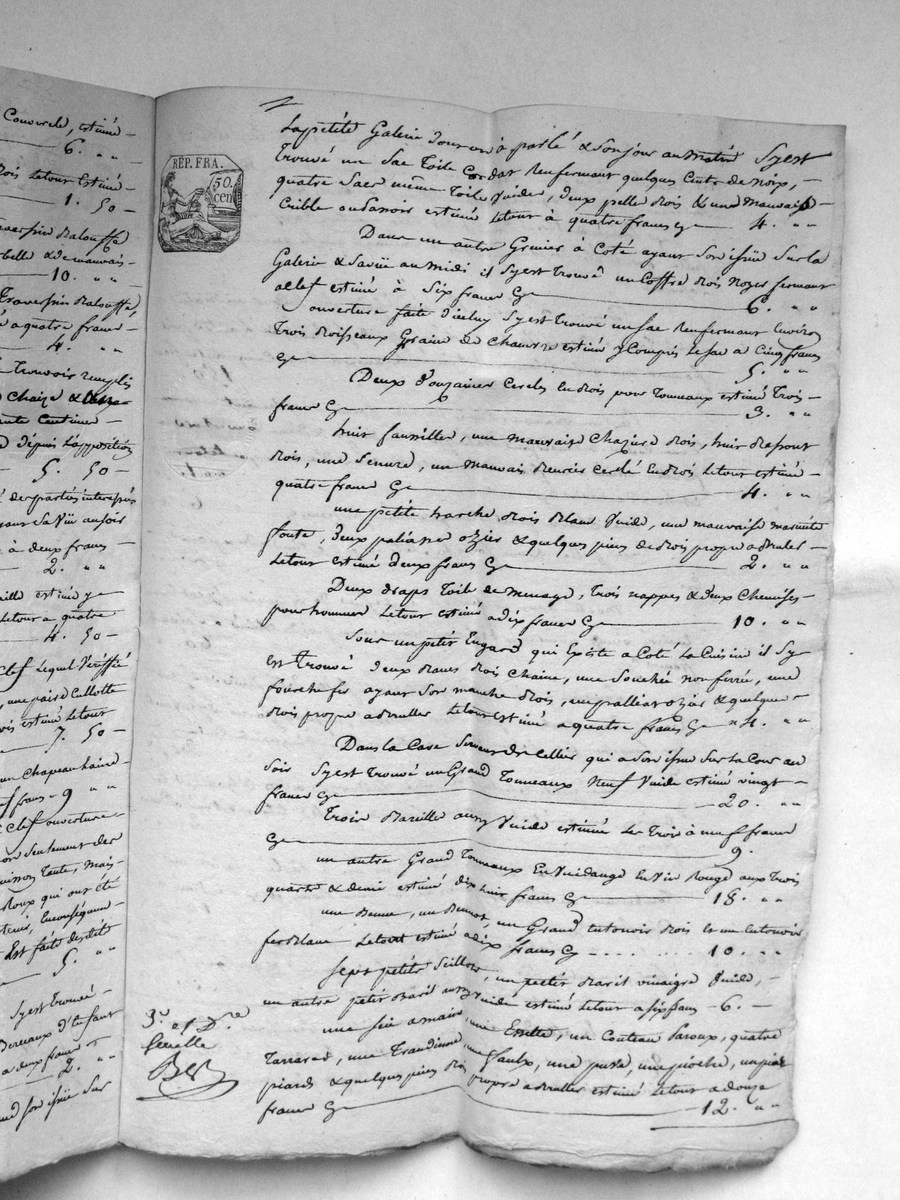 Couvercle, estimé
6. " "
Bois Letout Estimé
1. 50
Traversin Balouffe
& de mauvais
10. " "
Traversin Balouffe,
a quatre franc
4. " "
trouvoir remplis
chaize &
Centime
dépuis L'apposition
5. 50
des partiés interessés
Sa Vüe au soir
à deux francs
2. " "
estimé
Letout a quatre
4. 50
Clef Lequel Vériffié
une paire Cullotte
estimé Letout
7. 50
un Chapeau Laine
francs 9 " "
Clef ouverture
Seulement des
Toute, mais
qui ont été
Est faite desdits
5. " "
Syest trouvé
a deux francs
2. " "
son issüe Sur
REP. FRA.
50. cen
La pétité Galerie dont on à parlé & Son jour au matin Syest
Trouvé un Sac Toile Cordat Renfermant quelques Cents de noix,
quatre Sacs même Toile Vuide, deux pelle Bois & une Mauvais
Crible ou Passoir estimé Letout à quatre francs Cy 4. " "
Dans un autre Grenier à Coté ayant Son issüe Sur la
Galerie & Sa vüe au midi il Syest Trouvé un Coffre Bois Noyer fermant
a Clef estimé à Six francs Cy 6. " "
Louverture faite d'iceluy Syest Trouvé un Sac Renfermant Environ
Trois Boisseaux Graine de Chanvre estimé y Compris Le Sac a Cinq francs
Cy 5. " "
Deux d'ouzaines Cercles En Bois pour Tonneaux estimé Trois
francs Cy 3. " "
huit faucilles, une mauvaise Chazière Bois, huit
Bois, une Serrure, un mauvais Cerclé En Bois Letout estimé
quatre francs Cy 4. " "
une pétite harche Bois Blanc Vuide, une mauvaise marmite
fonte, deux paliasse ozier & quelques pieces de Bois propre a Bruler
Letout estimé deux francs Cy 2. " "
Deux draps Toile de menage, Trois nappes & deux Chemises
pour homme Letout estimé a dix francs Cy 10. " "
Sous un pétit Engard qui Existe a Coté La Cuisine il Sy
est Trouvé deux Bancs Bois Chaine, une Souchée non ferrée, une
fourche fer ayant Son manche Bois, un palliat ozier & quelque
Bois propre a Bruller Letout estimé a quatre francs Cy 4. " "
Dans La Cave Servant de Cellier qui a Son issüe Sur La Cour au
Soir Syest Trouvé un Grand Tonneaux Neuf Vuide estimé vingt
francs Cy 20. " "
Trois Bareille aussy Vuide estimée Les Trois à neuf francs
Cy 9.
un autre Grand Tonneaux En Vuidange En Vin Rouge aux Trois
quarts & demie estimé dix huit francs Cy 18. " "
une Benne, un Bennot, un Grand Entonoir Bois & un Entonoir
fer Blanc Letout estimé a dix francs Cy 10. " "
Sept pétits Seillots, un petit Baril vinaigre Vuide,
un autre pétit Baril aussy Vuide estimé Letout a Six francs 6.
une Sie a main, une Esselle, un Couteau Paroux, quatre
Tararas, une Trandinne, une faulx, une, une pioche, un
piards & quelques pieces Bois propre a Bruller estimé Letout a douze
francs Cy 12. " "
3.e et D.re
feuille